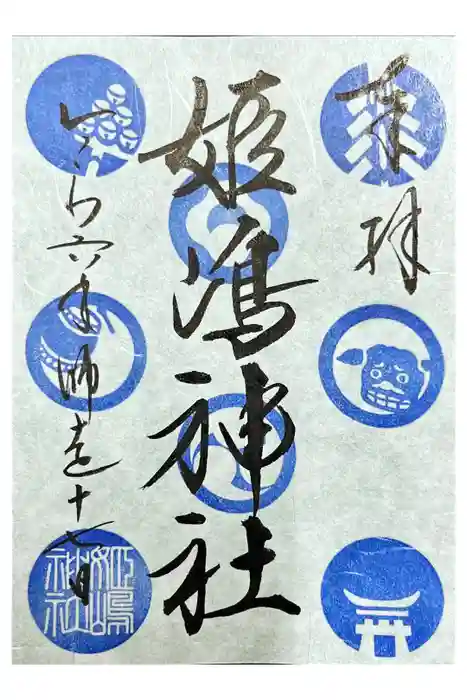 奉拝
姫嶋神社
令和六年師走十七日
姫嶋神社